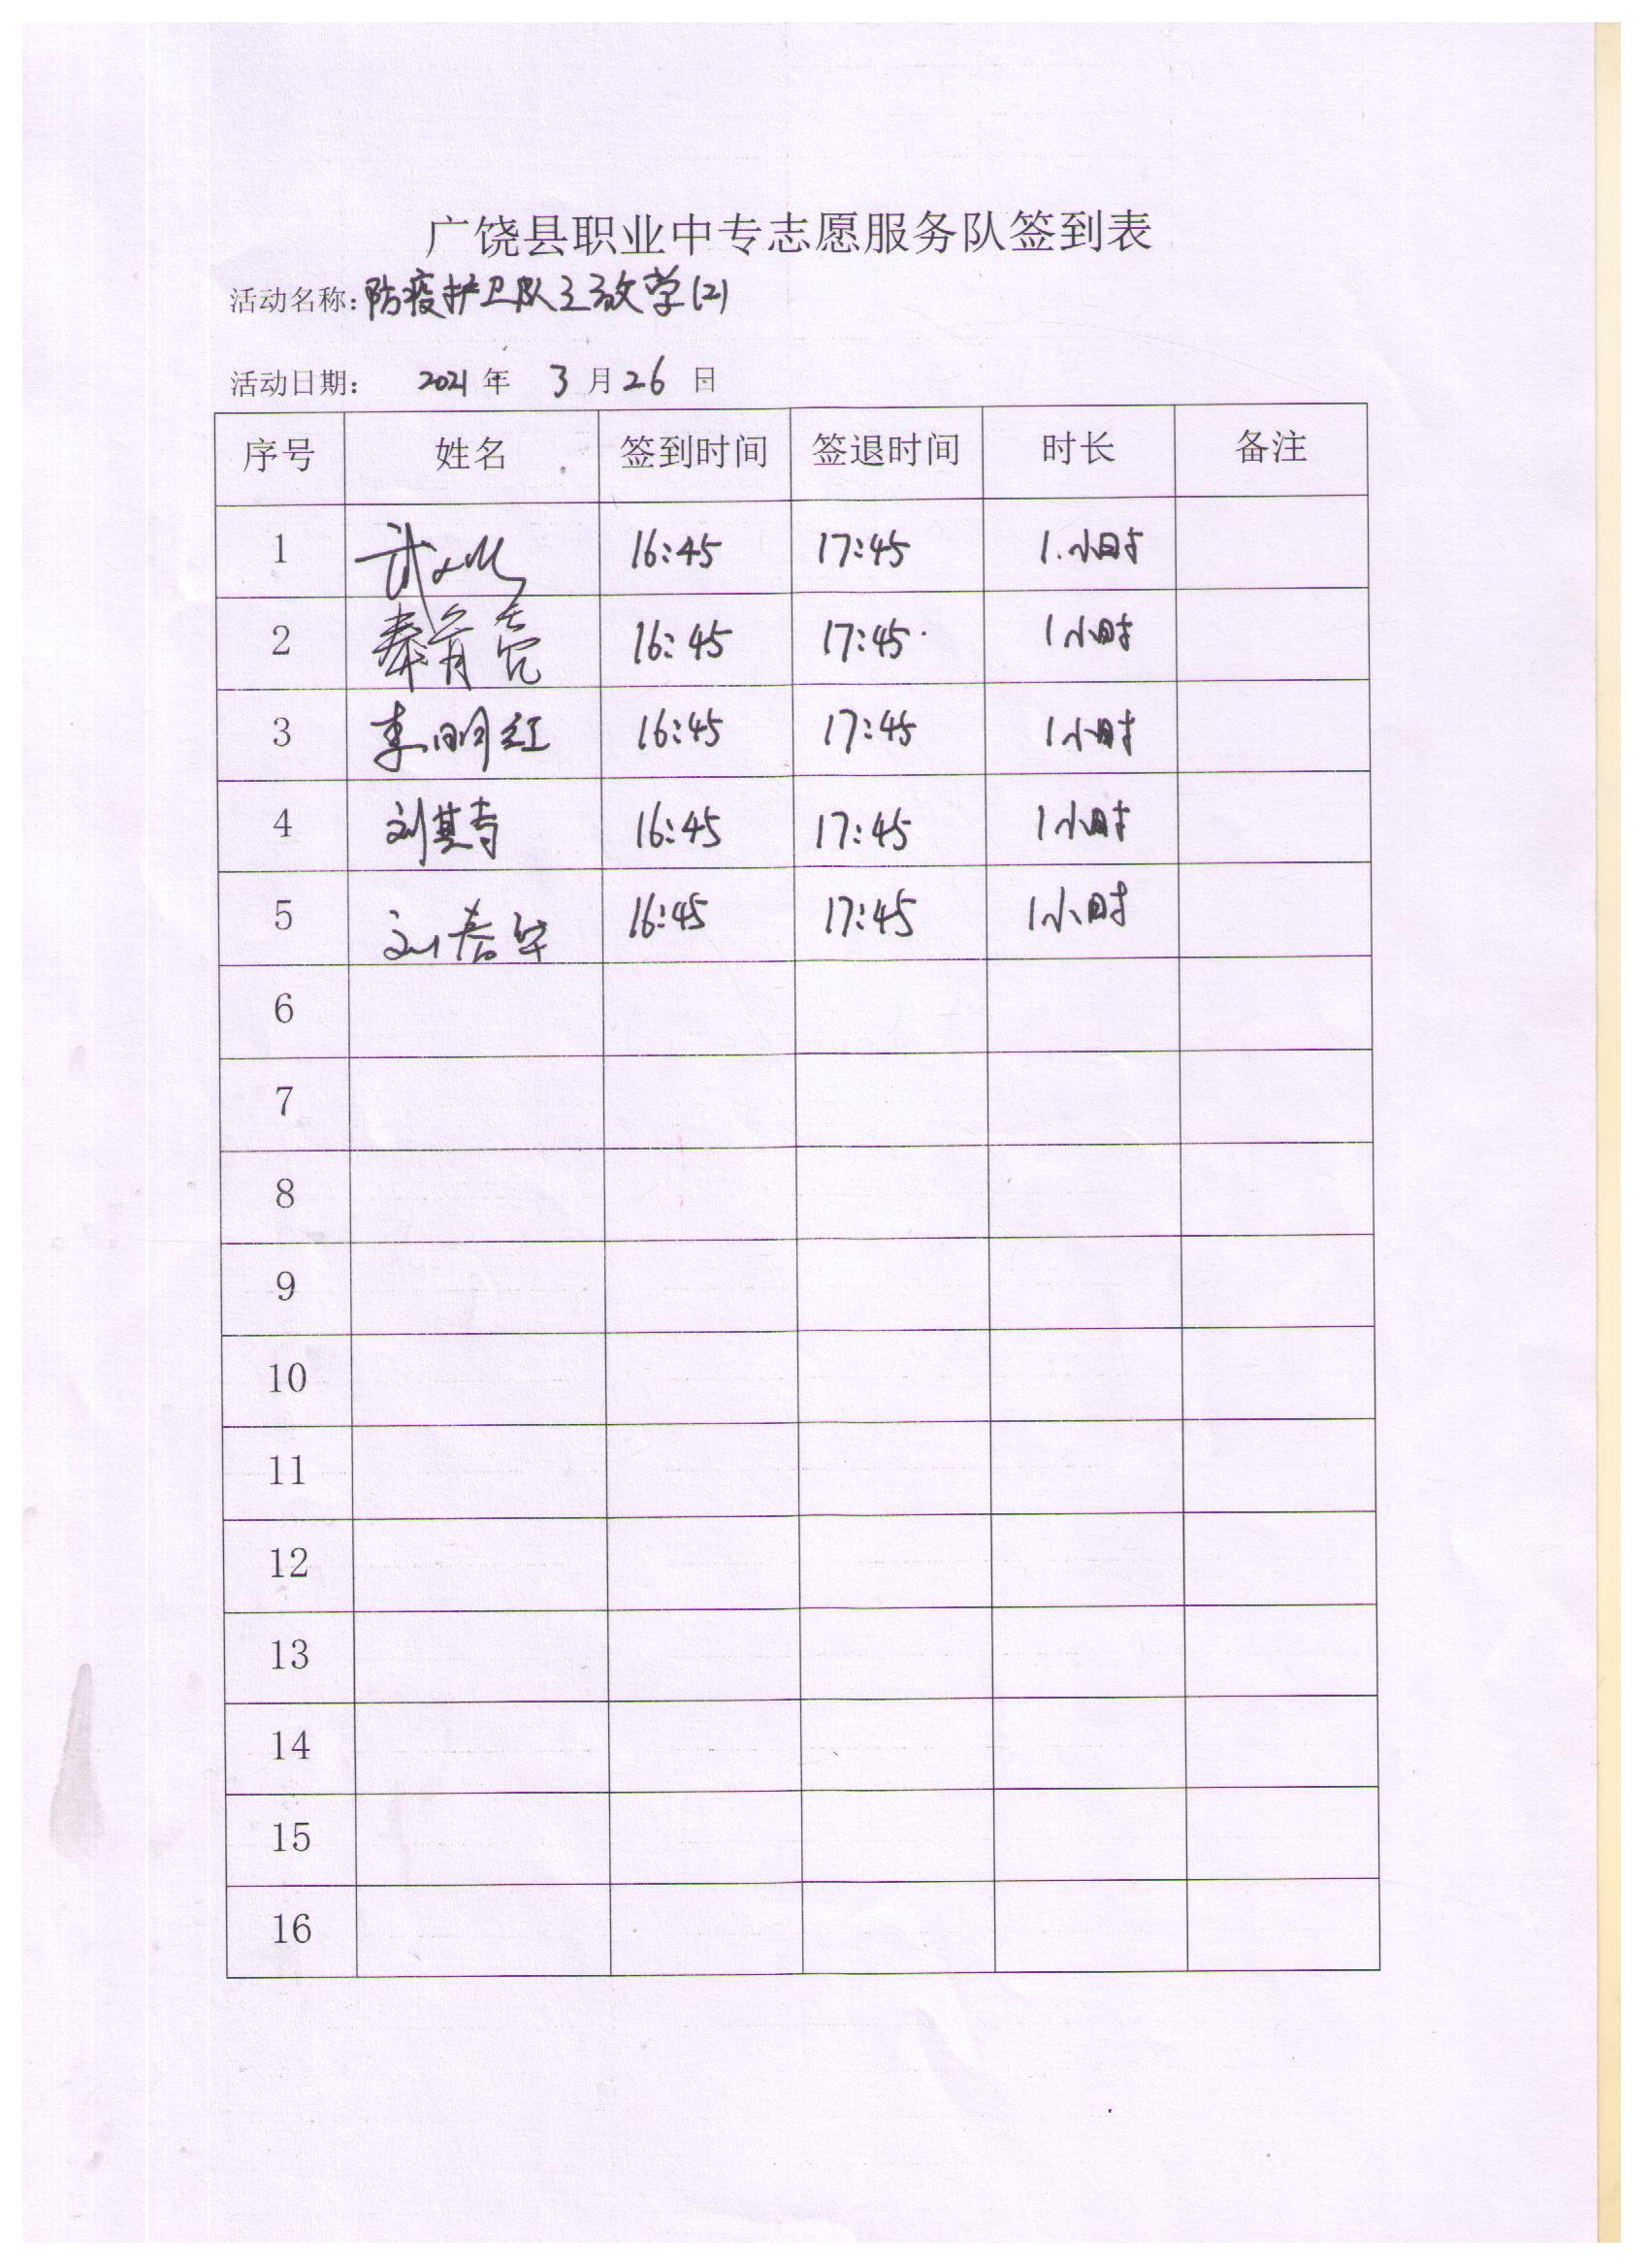 广饶县职业中专志愿服务队签到表
活动名称：防疫护卫队之放学(2)
活动日期： 2021 年 3 月 26 日
序号 姓名 签到时间 签退时间 时长 备注
1 16:45 17:45 1.小时
2 16:45 17:45 1小时
3 李明红 16:45 17:45 1小时
4 刘其 16:45 17:45 1小时
5 刘春 16:45 17:45 1小时
6
7
8
9
10
11
12
13
14
15
16